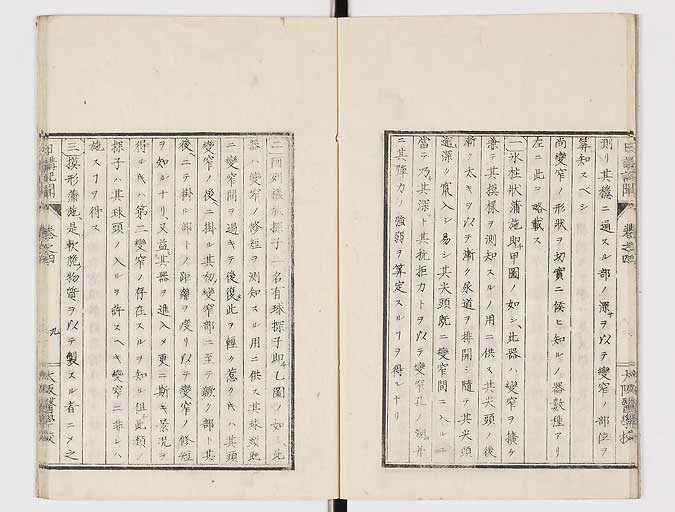 測リ其穩ニ過スル部ノ深サヲ以テ變窄ノ部位ヲ
算知スベシ
尚變窄ノ形狀ヲ切實ニ候ヒ知ルノ器數種アリ
左ニ此ヲ略載ス
一氷柱狀蒲施即甲圖ノ如シ此器ハ變窄ヲ擴ケ
兼テ其摸樣ヲ測知スルノ用ニ供ス其尖頭ノ後
漸ク太キヲ以テ漸ク尿道ヲ排開シ隨テ其尖頭
深ク竄入シ易シ其尖頭既ニ變窄間ニ入ルニ
當テ乃其深ト其抗拒力トヲ以テ變窄孔ノ濶幷
ニ其彈力ノ強弱ヲ算定スルヿヲ得ルナリ
二 探子一名有球探子即乙圖ノ如シ此
器ハ變窄ノ修短ヲ測知スル用ニ供ス其球頭既
ニ變窄間ヲ過キテ後復此ヲ輕ク惹クキハ其頭
變窄ノ後ニ掛ル其初變窄部ニ至テ礙ク部ト其
後ニテ掛ル部トノ距離ヲ度リ以テ變窄ノ修短
ヲ知ル十リ又益其器ヲ進入メ更ニ斯キ景況ヲ
得ルキハ第二變窄ノ存在スルヲ知ル但此類ノ
探子ハ其球頭ノ入ルヲ許スヘキ變窄ニ非レハ
施スヿヲ得ス
三摸形蒲施是軟脆物質ヲ以テ製スル者ニメ之
日講記聞
卷之四
九
大阪醫學校